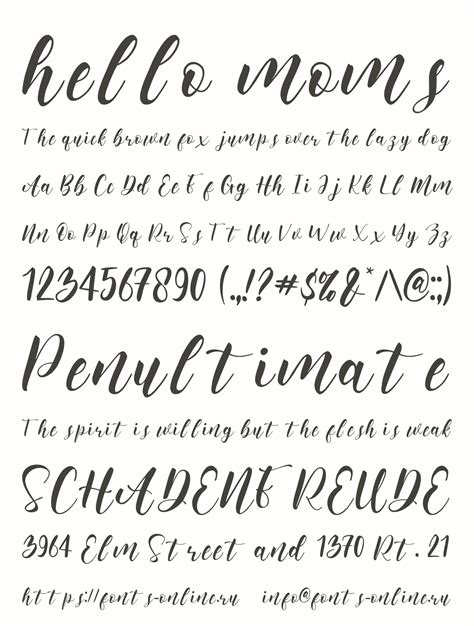 hello moms
The quick brown fox jumps over the lazy dog
Aa Bb Cc Dd Ee Ff Gg Hh Ii Jj Kk Ll Mm
Nn Oo Pp Qq Rr Ss Tt Uu Vv Ww Xx Yy Zz
1234567890 (.,!?#$%&*/\@:;)
Penultimate
The spirit is willing but the flesh is weak
SCHADENFREUDE
3964 Elm Street and 1370 Rt. 21
https://fonts-online.ru info@fonts-online.ru